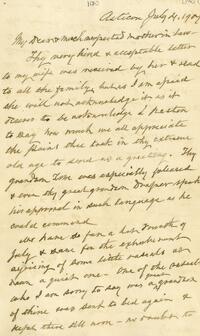 Asticou July 4, 190
My Dear & much respected mother in law
Thy very kind & acceptable letter
to my wife was received by her & read
to all the family, but as I am afraid
she will not acknowledge it as it
deserves to be acknowledged I hasten
to say how much we all appreciate
the pains thee took in thy extreme
old age to send us a greeting. Thy
grandson was especially pleased
& even thy great grandson Draper spoke
his approval in such language as he
could command
We have so far a hot 4 month of
July & save for the
uprising of some little rascals it has
been a quiet one - One of the rascals
who I am sorry to say was a grandson
of thine was sent to bed again &
kept there till noon - no doubt to